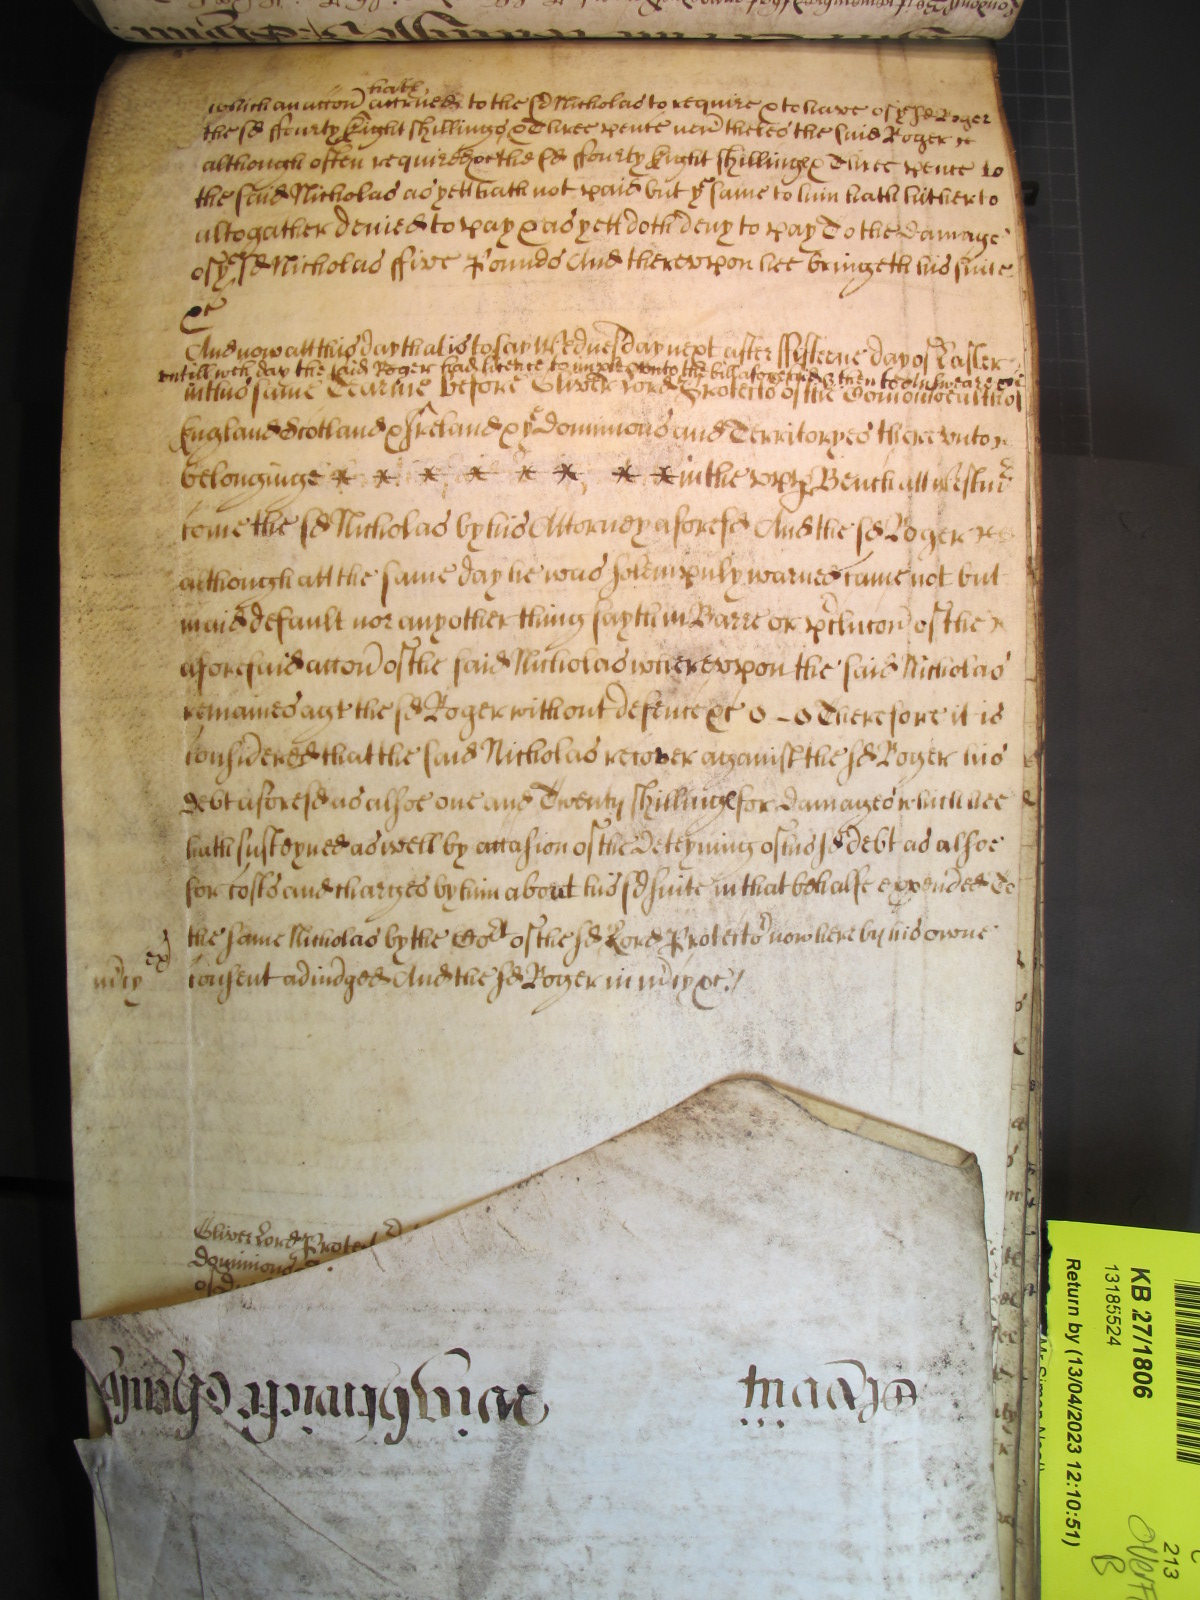 which an accon hath accrued to the sd Nicholas to require & to have of ye sd Roger
the sd ffourty Eight shillings & Three pence nevertheles the said Roger
although often required &c the sd ffourty Eight shillings & Three pence to
the said Nicholas as yett hath not paid but ye same to him hath hitherto
altogather denied to pay & as yett doth deny to pay To the damage
of ye sd Nicholas ffive Pounds And thereuppon hee bringeth his suite
&c
And now att this day that is to say Wednesday next after ffifteene dayes of Easter
untill wch day the said Roger had licence to imparle unto the bill aforesaid & then to answeare &c
in this same Tearme before Oliver Lord Protector of the Comonwealth of
England Scotland & Ireland & ye Dominions and Territoryes thereunto
belonginge * * * * * * * * in the upp Bench att Westmr
come the sd Nicholas by his Attorney aforesd And the sd Roger
although att the same day he was solempnly warned came not but
maid default nor any other thing sayth in Barre or preclucon of the
aforesaid accon of the said Nicholas whereuppon the said Nicholas
remaines agt the sd Roger without defence &c Therefore it is
considered that the said Nicholas recover against the sd Roger his
debt aforesd as alsoe one and Twenty shillings for damages which hee
hath susteyned as well by occasion of the deteyning of his sd debt as alsoe
for costs and charges by him about his sd suite in that behalfe expended To
the same Nicholas by the Cort of the sd Lord Protector now here by his owne
consent adiudged And the sd Roger in mcy &c
mcy
Oliver Lord Protect
dominions
KB 27/1806
13185524
Return by (13/04/2023 12:10:51)
213